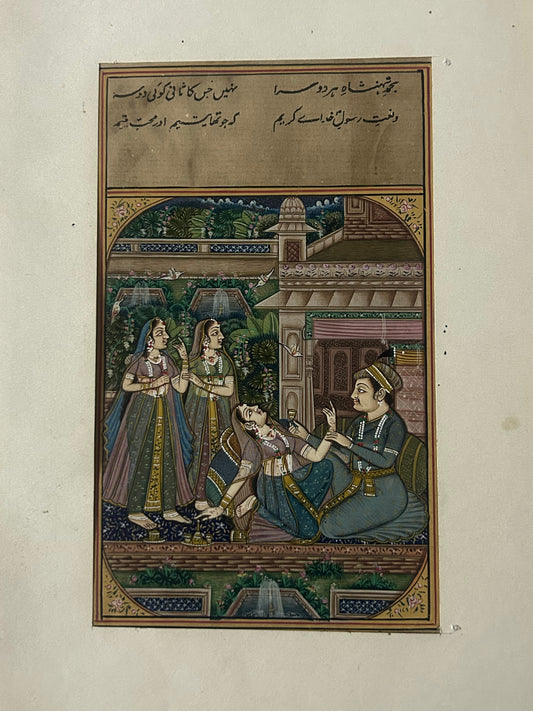 بحمد شہنشاہِ ہر دوسرا نہیں جس کا ثانی کوئی دوسرا
و نعتِ رسولِ خداے کریم کہ جو تھا یتیم اور محبِّ یتیم